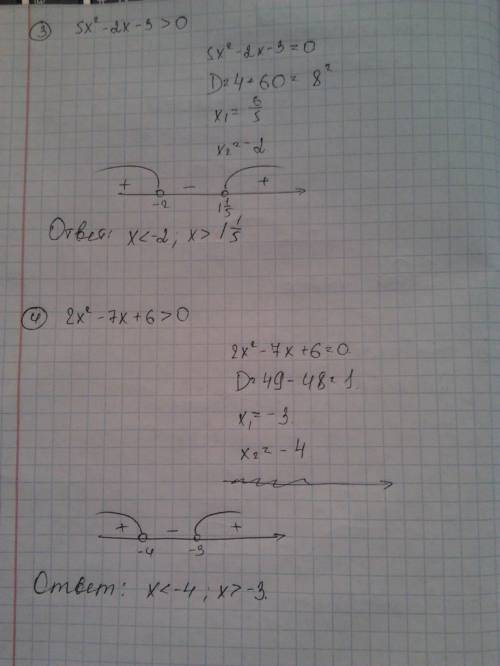 ③ 5x² - 2x - 3 > 0
5x² - 2x - 3 = 0
D = 4 + 60 = 8²
x₁ = 6/5
x₂ = -2
+ - +
-2 1 1/5
Ответ: x < -2; x > 1 1/5
④ 2x² - 7x + 6 > 0
2x² - 7x + 6 = 0
D = 49 - 48 = 1
x₁ = -3
x₂ = -4
+ - +
-4 -3
Ответ: x < -4; x > -3.